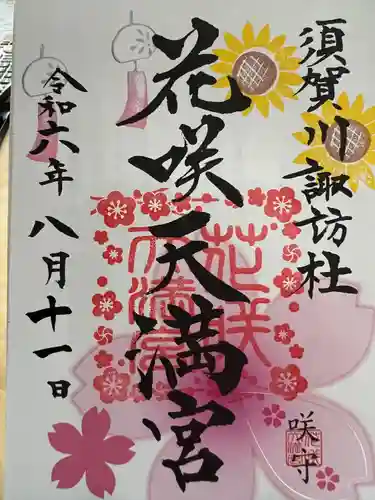 須賀川諏訪社
花咲天満宮
令和六年八月十一日
咲守
花咲
天満宮